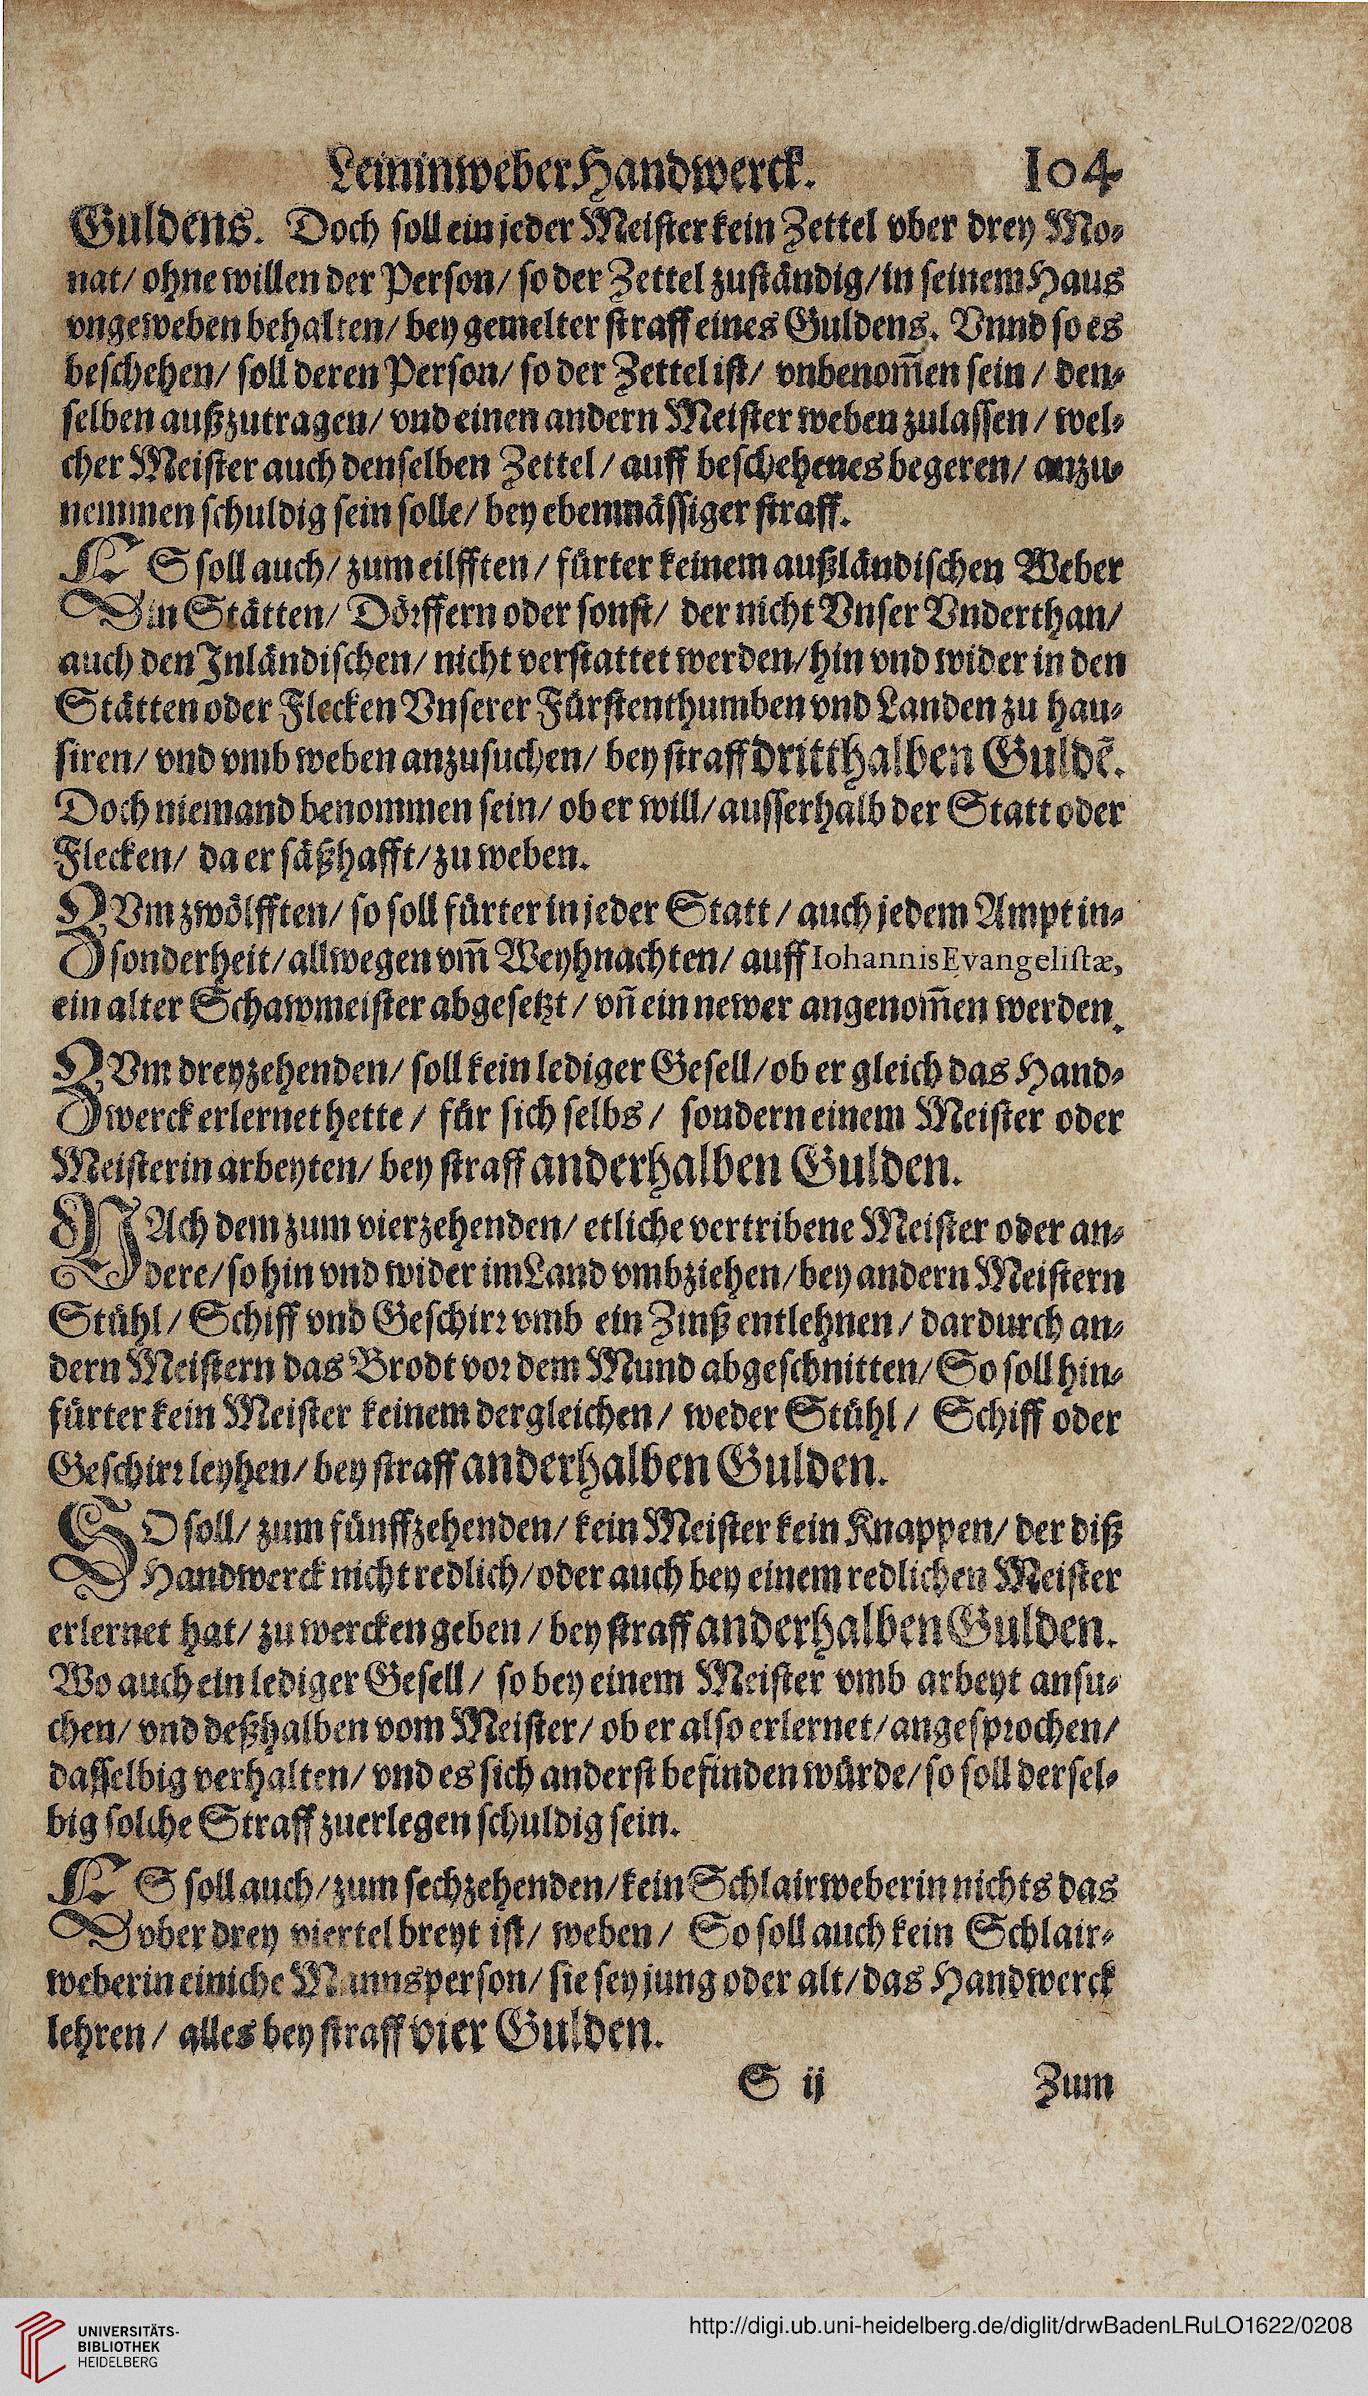 Leininweber Handwerck. 104
Guldens. Doch soll ein jeder Meister kein Zettel vber drey Mo-
nat/ ohne willen der Person/ so der Zettel zuständig/ in seinem Haus
vngeweben behalten/ bey gemelter straff eines Guldens. Vnnd so es
beschehen/ soll deren Person/ so der Zettel ist/ vnbenom̃en sein/ den-
selben außzutragen/ vnd einen andern Meister weben zulassen/ wel-
cher Meister auch denselben Zettel/ auff beschehenes begeren/ anzu-
nemmen schuldig sein solle/ bey ebenmässiger straff.
ES soll auch/ zum eilfften/ fürter keinem außländischen Weber
in Stätten/ Dörffern oder sonst/ der nicht Vnser Vnderthan/
auch den Inländischen/ nicht verstattet werden/ hin vnd wider in den
Stätten oder Flecken Vnserer Fürstenthumben vnd Landen zu hau-
siren/ vnd vmb weben anzusuchen/ bey straff dritthalben Guldẽ.
Doch niemand benommen sein/ ob er will/ ausserhalb der Statt oder
Flecken/ da er säßhafft/ zu weben.
ZVm zwölfften/ so soll fürter in jeder Statt/ auch jedem Ampt in-
sonderheit/ allwegen vm̃ Weyhnachten/ auff Iohannis Evangelistæ,
ein alter Schawmeister abgesetzt/ vñ ein newer angenom̃en werden.
ZVm dreyzehenden/ soll kein lediger Gesell/ ob er gleich das Hand-
werck erlernet hette/ für sich selbs/ sondern einem Meister oder
Meisterin arbeyten/ bey straff anderhalben Gulden.
NAch dem zum vierzehenden/ etliche vertribene Meister oder an-
dere/ so hin vnd wider im Land vmbziehen/ bey andern Meistern
Stühl/ Schiff vnd Geschirr vmb ein Zinß entlehnen/ dardurch an-
dern Meistern das Brodt vor dem Mund abgeschnitten/ So soll hin-
fürter kein Meister keinem dergleichen/ weder Stühl/ Schiff oder
Geschirr leyhen/ bey straff anderhalben Gulden.
SO soll/ zum fünffzehenden/ kein Meister kein Knappen/ der diß
Handwerck nicht redlich/ oder auch bey einem redlichen Meister
erlernet hat/ zu wercken geben/ bey straff anderhalben Gulden.
Wo auch ein lediger Gesell/ so bey einem Meister vmb arbeyt ansu-
chen/ vnd deßhalben vom Meister/ ob er also erlernet/ angesprochen/
dasselbig verhalten/ vnd es sich anderst befinden würde/ so soll dersel-
big solche Straff zuerlegen schuldig sein.
ES soll auch/ zum sechzehenden/ kein Schlairweberin nichts das
vber drey viertel breyt ist/ weben/ So soll auch kein Schlair-
weberin einiche Mannsperson/ sie sey jung oder alt/ das Handwerck
lehren/ alles bey straff vier Gulden.
S ij Zum
UNIVERSITÄTS-
BIBLIOTHEK
HEIDELBERG
http://digi.ub.uni-heidelberg.de/diglit/drwBadenLRuLO1622/0208